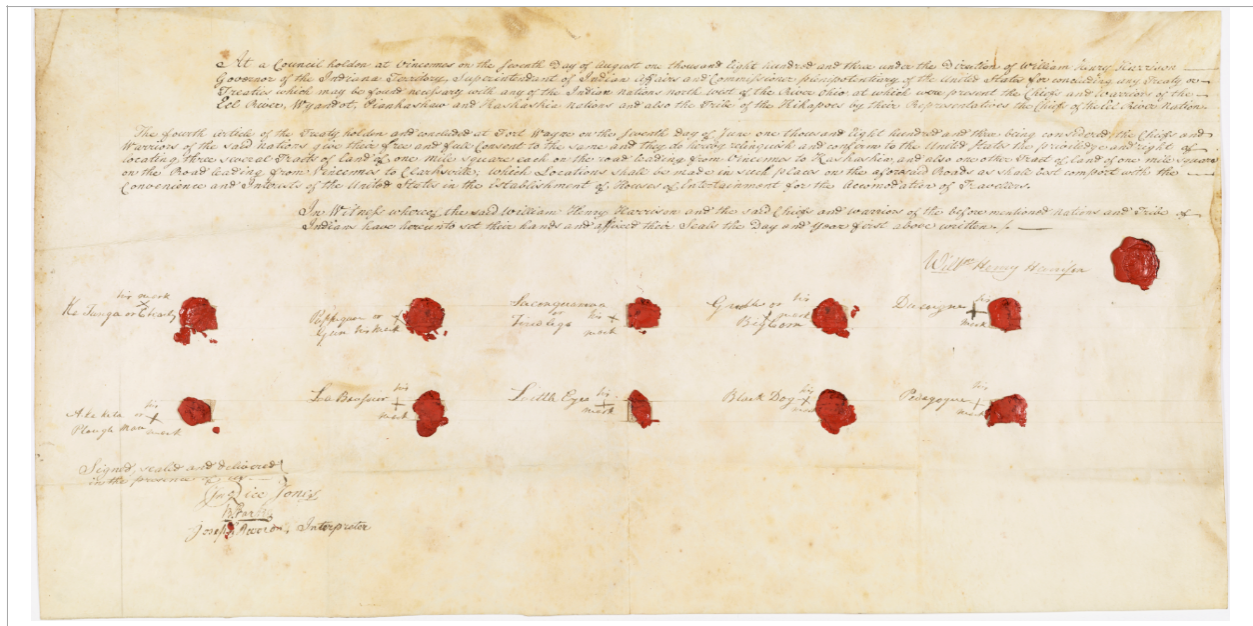 At a Council holden at Vincennes on the Seventh Day of August one thousand eight hundred and three under the Direction of William Henry Harrison
Governor of the Indiana Territory, Superintendent of Indian Affairs and Commissioner plenipotentiary of the United States for concluding any Treaty or
Treaties which may be found necessary with any of the Indian nations north west of the River Ohio at which were present the Chiefs and warriors of the
Eel River, Wyandot, Piankashaw and Kaskaskia nations and also the Tribe of the Kikapoes by their Representatives the Chiefs of the Eel River Nation
The fourth Article of the Treaty holden and concluded at Fort Wayne on the Seventh day of June one thousand eight hundred and three being considered, the Chiefs and
Warriors of the said Nations give their free and full Consent to the same and they do hereby relinquish and confirm to the United States the priviledge and right of
locating three several Tracts of land of one mile square each on the road leading from Vincennes to Kaskaskia, and also one other Tract of land of one mile square
on the Road leading from Vincennes to Clarksville; which Locations shall be made in such places on the aforesaid Roads as shall best comport with the
Convenience and Interests of the United States in the Establishment of Houses of Entertainment for the Accomodation of Travellers.
In Witness whereof the said William Henry Harrison and the said Chiefs and warriors of the before mentioned nations and Tribe of
Indians have hereunto set their hands and affixed their Seals the Day and Year first above written.
Will^m Henry Harrison
Ka Tunga or Charly his X mark
Puppequor or Gun his X mark
or his X mark
or his X mark Big Corn
Ducaigne his + mark
or Plough Man his + mark
La Boussier his + mark
Little Eyes his + mark
Black Dog his X mark
Pedagogue his + mark
Signed, sealed and delivered
in the presence of
Jn^o Rice Jones
B. Parke
Joseph Barron, Interpreter